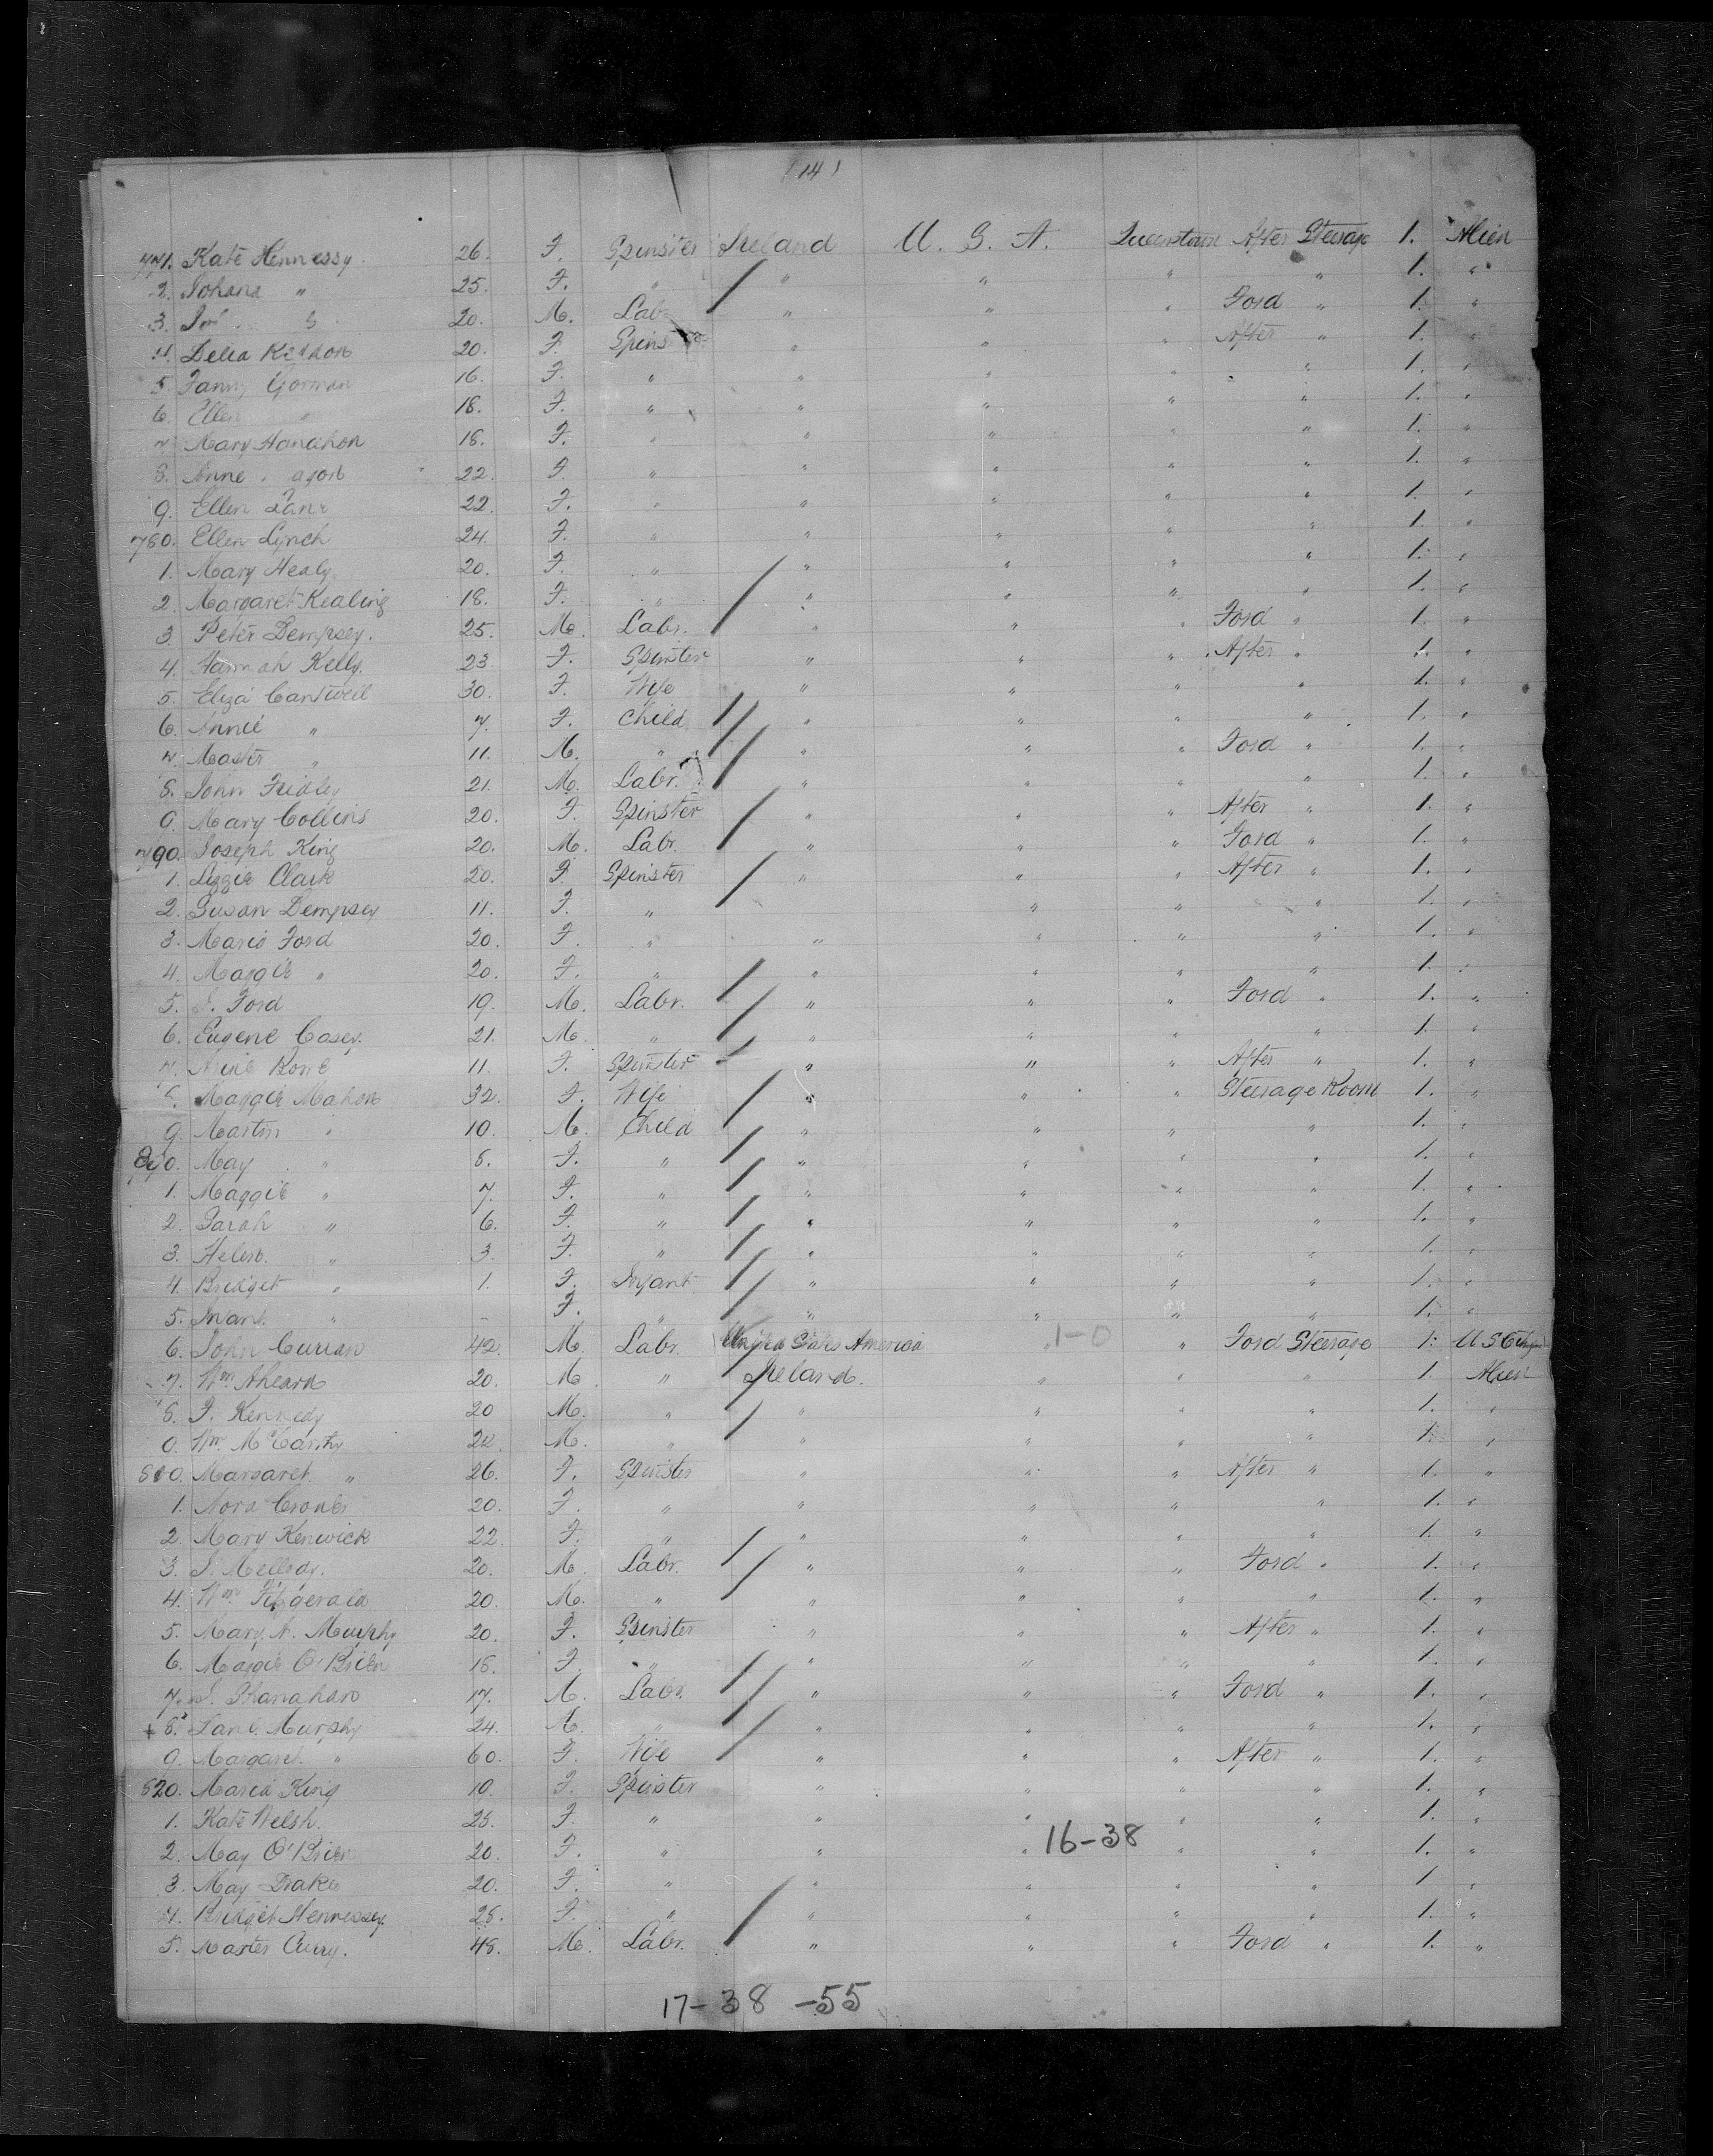 (14)
771. Kate Hennessy. 26. F. Spinster Ireland U. S. A. Queenstown After Steerage 1. Alien
2. Johana " 25. F. " " " " " 1. "
3. 20. M. Lab " " " Ford " 1. "
4. Delia 20. F. Spinster " " " After " 1. "
5. Fanny Gorman 16. F. " " " " " 1. "
6. Ellen " 18. F. " " " " " 1. "
7. Mary Hanahan 18. F. " " " " " 1. "
8. Anne 22. F. " " " " " 1. "
9. Ellen 22. F. " " " " " 1. "
780. Ellen Lynch 24. F. " " " " " 1. "
1. Mary Healy 20. F. " " " " " 1. "
2. Margaret Kealing 18. F. " " " " " 1. "
3. Peter Dempsey. 25. M. Labr. " " " Ford " 1. "
4. Hannah Kelly. 23. F. Spinster " " " After " 1. "
5. Eliza Cantwell 30. F. Wife " " " " 1. "
6. Annie " 7. F. Child " " " " 1. "
7. Master " 11. M. " " " " Ford " 1. "
8. John Fridley 21. M. Labr. " " " " 1. "
9. Mary Collins 20. F. Spinster " " " After " 1. "
790. Joseph King 20. M. Labr. " " " Ford " 1. "
1. Lizzie Clark 20. F. Spinster " " " After " 1. "
2. Susan Dempsey 11. F. " " " " 1. "
3. Maria Ford 20. F. " " " " " 1. "
4. Maggie " 20. F. " " " " " 1. "
5. J. Ford 19. M. Labr. " " " Ford " 1. "
6. Eugene Casey. 21. M. " " " " " 1. "
7. 11. F. Spinster " " " After " 1. "
8. Maggie Mahon 32. F. Wife " " " Steerage Room 1. "
9. Martin " 10. M. Child " " " " 1. "
800. May " 8. F. " " " " " 1. "
1. Maggie " 7. F. " " " " " 1. "
2. Sarah " 6. F. " " " " " 1. "
3. Helen. " 3. F. " " " " " 1. "
4. Bridget " 1. F. Infant " " " " 1. "
5. Infant. " - F. " " " " " 1. "
6. John Curran 42. M. Labr. United States America " 1-0 " Ford Steerage 1. U S Citizen
7. Wm. Ahearn 20. M. " Ireland. " " " 1. Alien
8. J. Kennedy 20 M. " " " " " 1. "
9. Wm. McCarthy 22. M. " " " " " 1. "
810. Margaret " 26. F. Spinster " " " After " 1. "
1. Nora 20. F. " " " " " 1. "
2. Mary Kenwick 22. F. " " " " " 1. "
3. J. 20. M. Labr. " " " Ford " 1. "
4. Wm. Fitzgerald 20. M. " " " " " 1. "
5. Mary A. Murphy 20. F. Spinster " " " After " 1. "
6. Maggie O'Brien 18. F. " " " " " 1. "
7. J. Shanahan 17. M. Labr. " " " Ford " 1. "
+ 8. Murphy 24. M. " " " " " 1. "
9. Margaret " 60. F. Wife " " " After " 1. "
820. Maria King 19. F. Spinster " " " " 1. "
1. Kate Welsh. 25. F. " " " " " 1. "
16-38
2. May O'Brien 20. F. " " " " " 1. "
3. May Drake 20. F. " " " " " 1. "
4. Bridget Hennessy. 25. F. " " " " " 1. "
5. Master Curry. 48. M. Labr. " " " Ford " 1. "
17-38-55